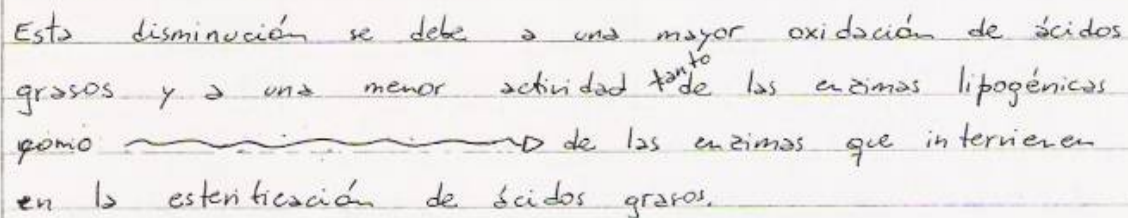 Esta disminución se debe a una mayor oxidación de ácidos
grasos y a una menor actividad tanto de las enzimas lipogénicas
como de las enzimas que intervienen
en la esterificación de ácidos grasos.